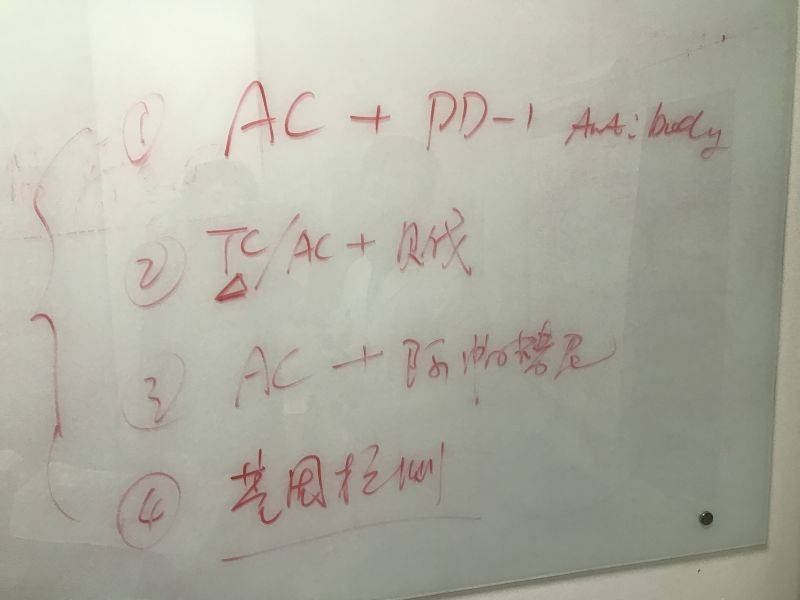 ① AC + PD-1 Antibody
② TC/AC + 贝伐
③ AC + 阿帕替尼
④ 基因检测